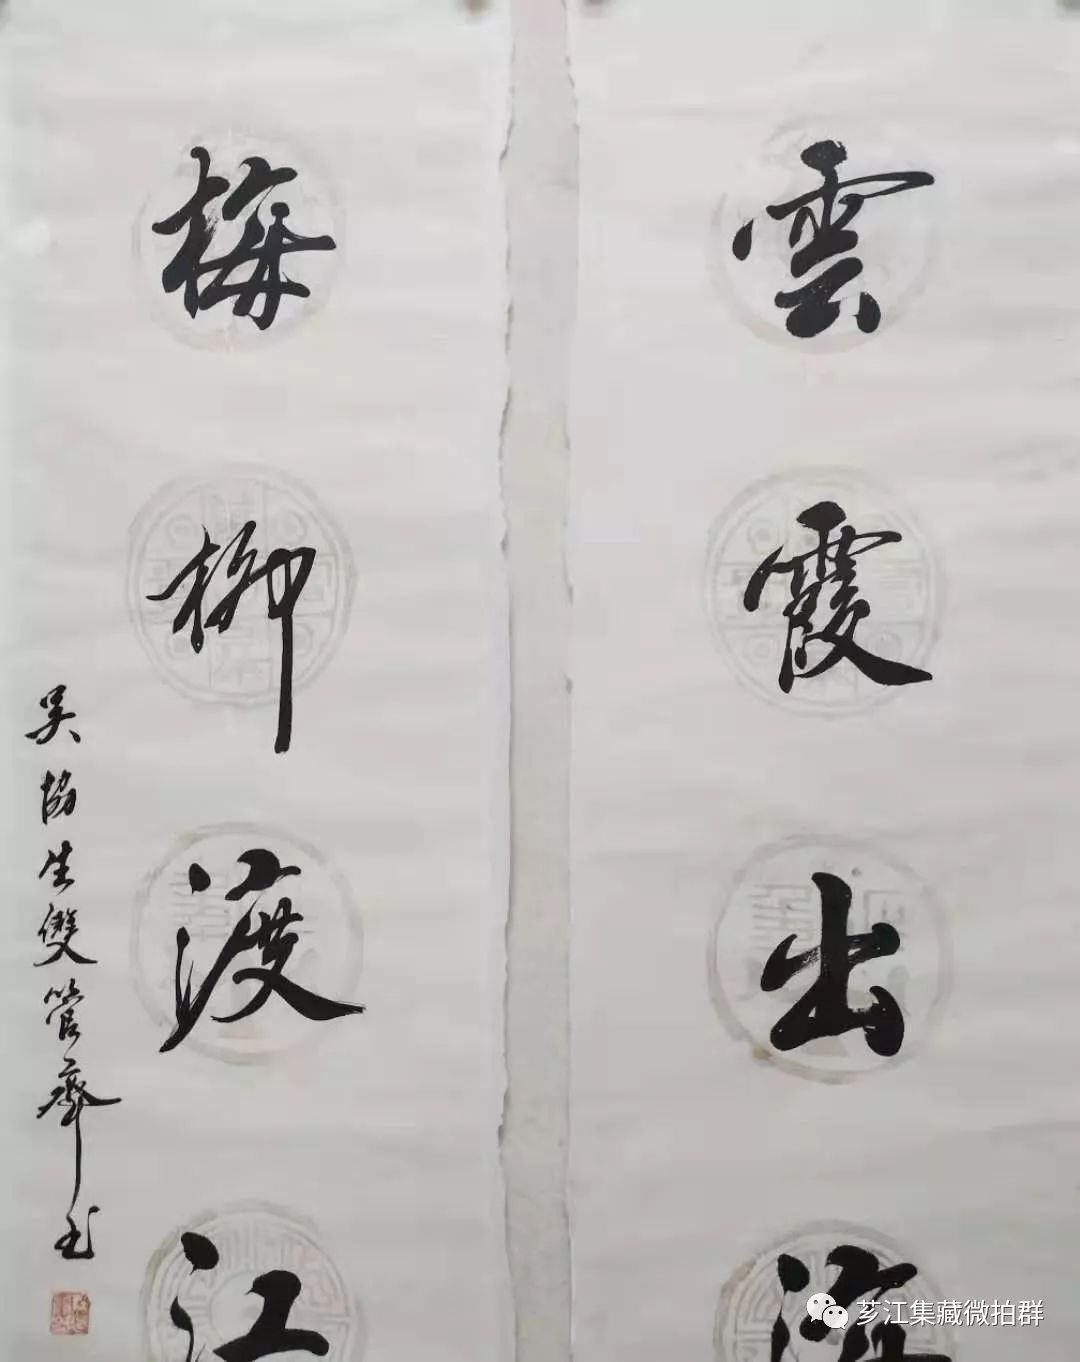 雲霞出海
梅柳渡江
吴協生雙管齋書
芗江集藏微拍群